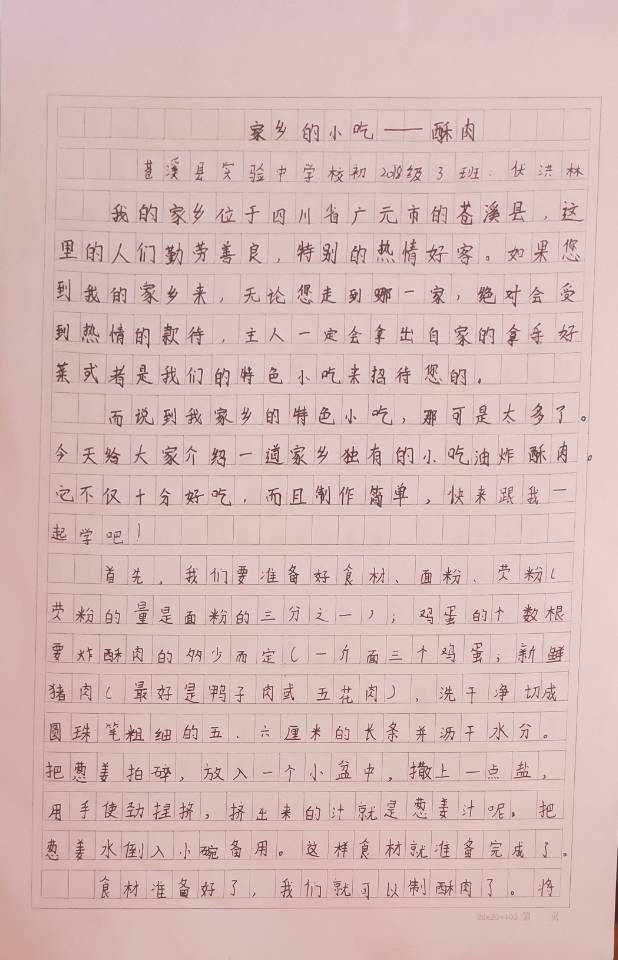 家乡的小吃——酥肉
苍溪县实验中学校初2018级3班：伏洪林
我的家乡位于四川省广元市的苍溪县，这
里的人们勤劳善良，特别的热情好客。如果您
到我的家乡来，无论您走到哪一家，绝对会受
到热情的款待，主人一定会拿出自家的拿手好
菜或者是我们的特色小吃来招待您的。
而说到我家乡的特色小吃，那可是太多了。
今天给大家介绍一道家乡独有的小吃油炸酥肉。
它不仅十分好吃，而且制作简单，快来跟我一
起学吧！
首先，我们要准备好食材、面粉、芡粉（
芡粉的量是面粉的三分之一）；鸡蛋的个数根
要炸酥肉的多少而定（一斤面三个鸡蛋；新鲜
猪肉（最好是鸭子肉或五花肉），洗干净切成
圆珠笔粗细的五、六厘米的长条并沥干水分。
把葱姜拍碎，放入一个小盆中，撒上一点盐，
用手使劲捏挤，挤出来的汁就是葱姜汁呢。把
葱姜水倒入小碗备用。这样食材就准备完成了。
食材准备好了，我们就可以制酥肉了。将
20x20=400 第 页